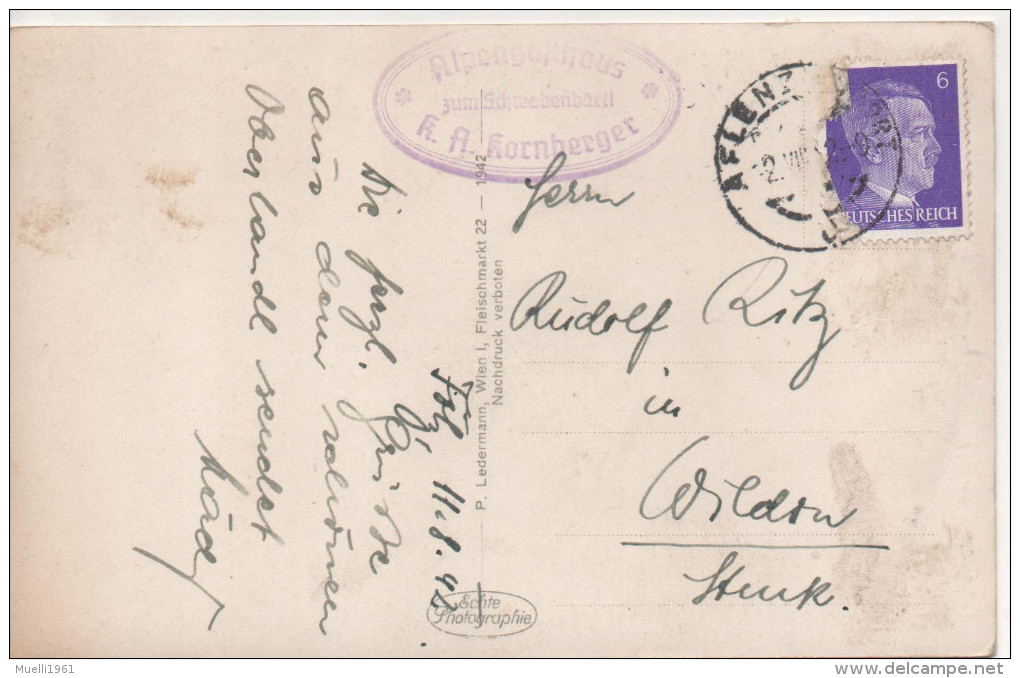 Alpengasthaus
zum Schwabenbartl
K. A. Kornberger
AFLENZ
6
DEUTSCHES REICH
Föl
11.8.42
Die herzl. Grüsse
aus dem schönen
Oberlandl sendet
P. Ledermann, Wien I, Fleischmarkt 22 — 1942
Nachdruck verboten
Echte
Photographie
Herrn
Rudolf Ritz
in
Wildon
Stmk.
Muelli1961
delcampe.net